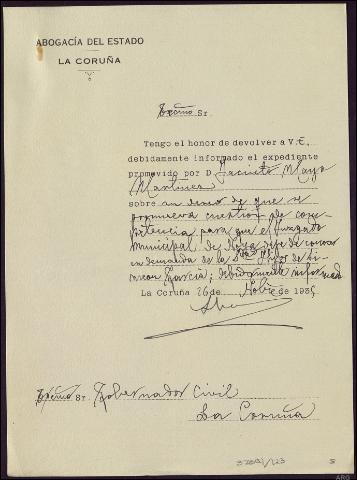 ABOGACÍA DEL ESTADO
LA CORUÑA
Excmo Sr.
Tengo el honor de devolver a V.E.,
debidamente informado el expediente
promovido por D. Jacinto Mayo
Martínez
sobre un deseo de que se
promueva cuestión de com-
petencia para que el Juzgado
Municipal de Noya deje de conocer
en demanda de la
García; debidamente informado
La Coruña 26 de de 193
Excmo Sr. Gobernador Civil
La Coruña